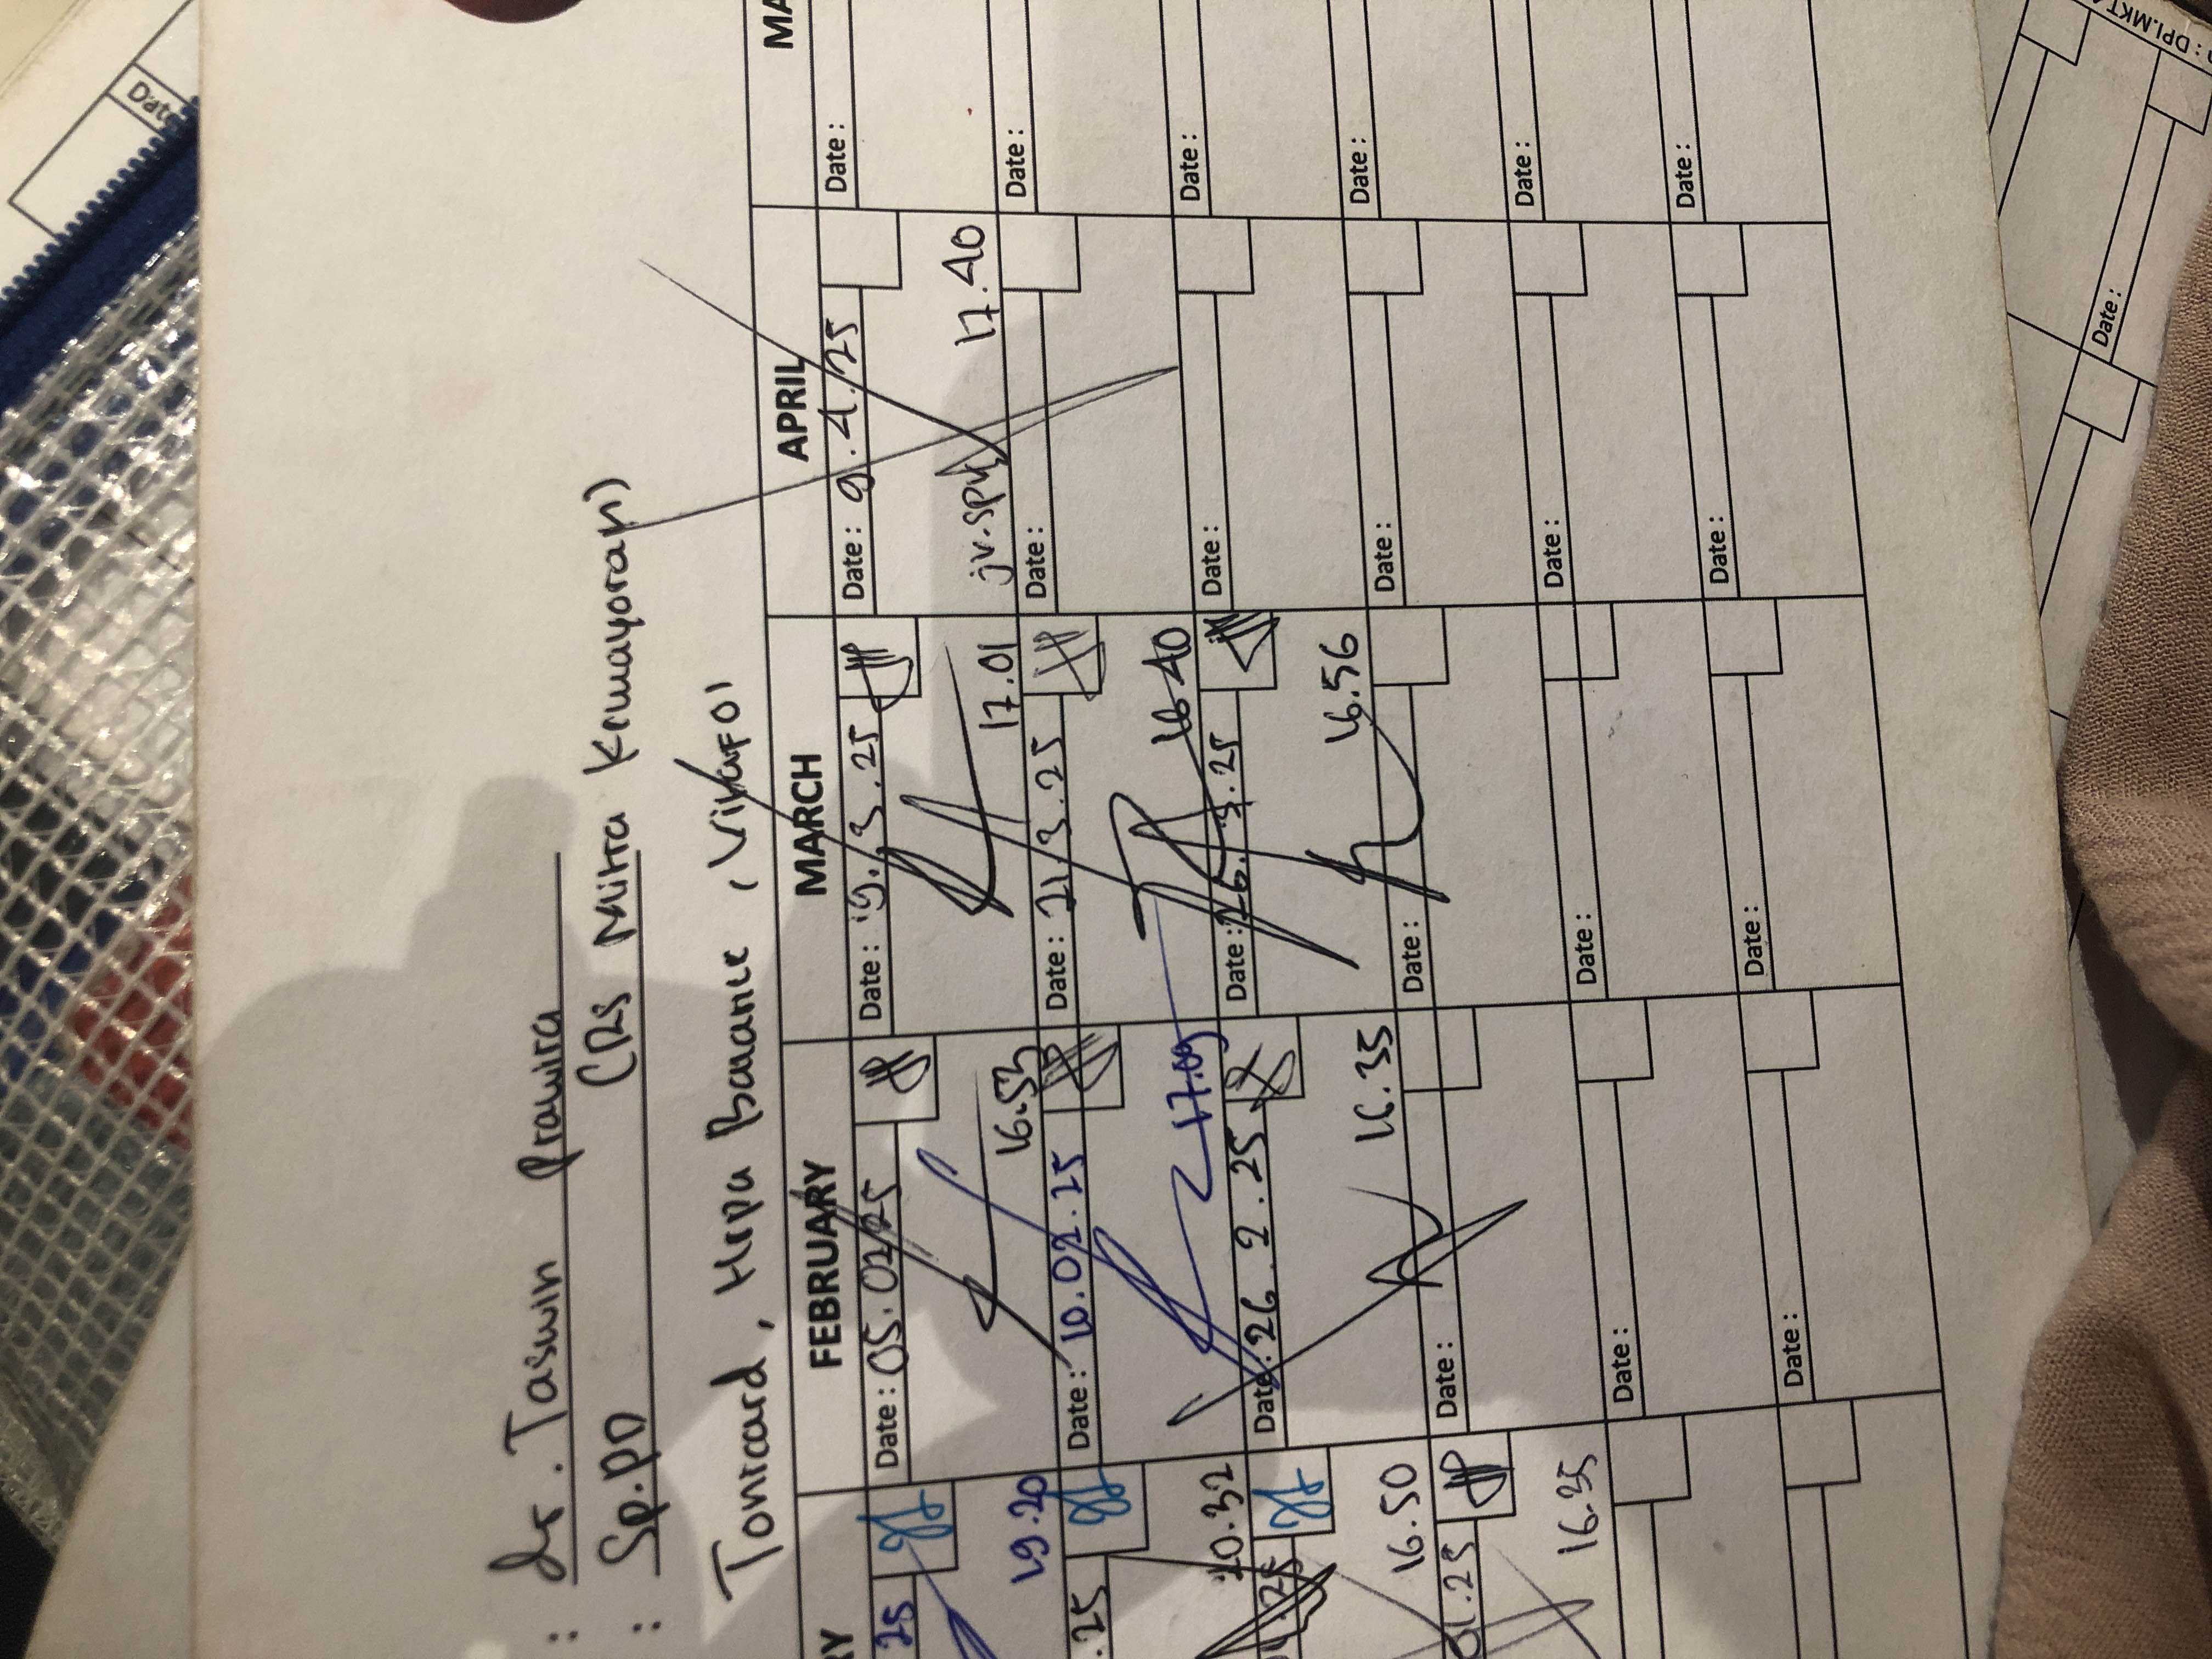 : dr. Taswin Prawira
: Sp.PD (RS Mitra Kemayoran)
Tonicard, Hepa Balance, Vikaf01
RY FEBRUARY MARCH APRIL MA
25 Date: 05.02.25 Date: 19.3.25 Date: 9.4.25 Date:
19.20 16.53 17.01 jv.spv 17.40
.25 Date: 10.02.25 Date: 21.3.25 Date: Date:
20.32 17.09 16.40
.25 Date: 26.2.25 Date: 26.3.25 Date: Date:
16.50 16.35 16.56
01.25 Date: Date: Date: Date:
16.35
Date: Date: Date: Date:
Date: Date: Date: Date:
Date
: DPI.MKT
Date:
Date: